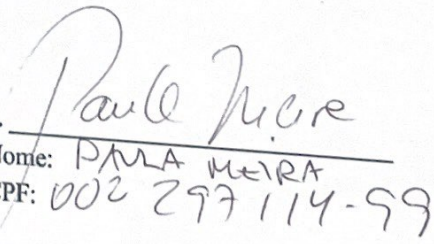 Paula Meira
Nome: PAULA MEIRA
CPF: 002 297 114-99